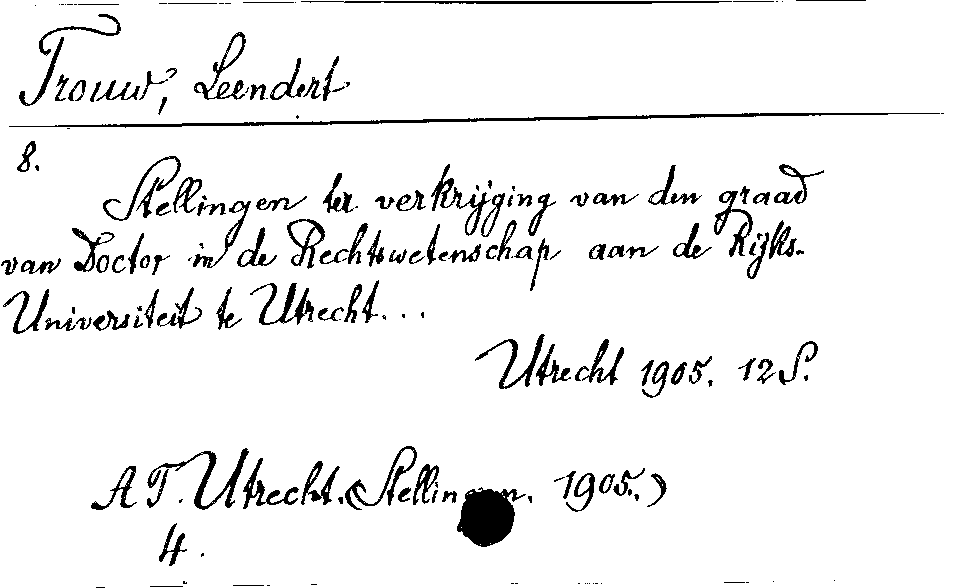 Trouw, Leendert
8.
Stellingen ter verkrijging van den graad
van Doctor in de Rechtswetenschap aan de Rijks-
Universiteit te Utrecht...
Utrecht 1905. 12 S.
AT. Utrecht. (Stellingen. 1905.)
4.